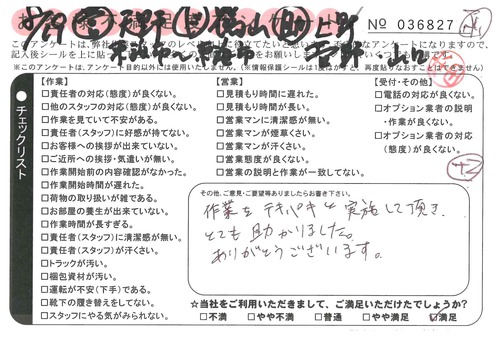 № 036827
このアンケートは、弊社
記入後シールを上に貼って
※このアンケートは、アンケート目的以外には使用いたしません。(※情報保護シールは1度はがすと、再度貼りなおすことはできません)
チェックリスト
【作業】
□責任者の対応(態度)が良くない。
□他のスタッフの対応(態度)が良くない。
□作業を見ていて不安がある。
□責任者(スタッフ)に好感が持てない。
□お客様への挨拶が出来ていない。
□ご近所への挨拶・気遣いが無い。
□作業開始前の内容確認がなかった。
□作業開始時間が遅れた。
□荷物の取り扱いが雑である。
□お部屋の養生が出来ていない。
□作業時間が長すぎる。
□責任者(スタッフ)に清潔感が無い。
□責任者(スタッフ)が汗くさい。
□トラックが汚い。
□梱包資材が汚い。
□運転が不安(下手)である。
□靴下の履き替えをしてない。
□スタッフにやる気がみられない。
【営業】
□見積もり時間に遅れた。
□見積もり時間が長い。
□営業マンに清潔感が無い。
□営業マンが煙草くさい。
□営業マンが汗くさい。
□営業態度が良くない。
□営業の説明と作業が一致してない。
【受付・その他】
□電話の対応が良くない。
□オプション業者の説明
・作業が良くない。
□オプション業者の対応
(態度)が良くない。
+2
その他、ご意見・ご要望等ありましたらお書き下さい。
作業をテキパキと実施して頂き、
とても助かりました。
ありがとうございます。
☆当社をご利用いただきまして、ご満足いただけたでしょうか?
□不満 □やや不満 □普通 □やや満足 ☑満足